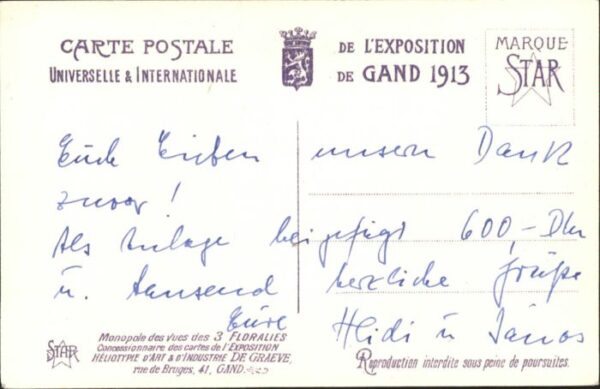 CARTE POSTALE
UNIVERSELLE & INTERNATIONALE
DE L'EXPOSITION
DE GAND 1913
MARQUE
STAR
Euch Lieben unsern Dank
zuvor!
Als Anlage beigefügt 600,- DM
u. tausend herzliche Grüße
Eure
Heidi u János
STAR
Monopole des vues des 3 FLORALIES
Concessionnaire des cartes de l'EXPOSITION
HÉLIOTYPE D'ART & D'INDUSTRIE DE GRAEVE,
rue de Bruges, 41, GAND.
Reproduction interdite sous peine de poursuites.